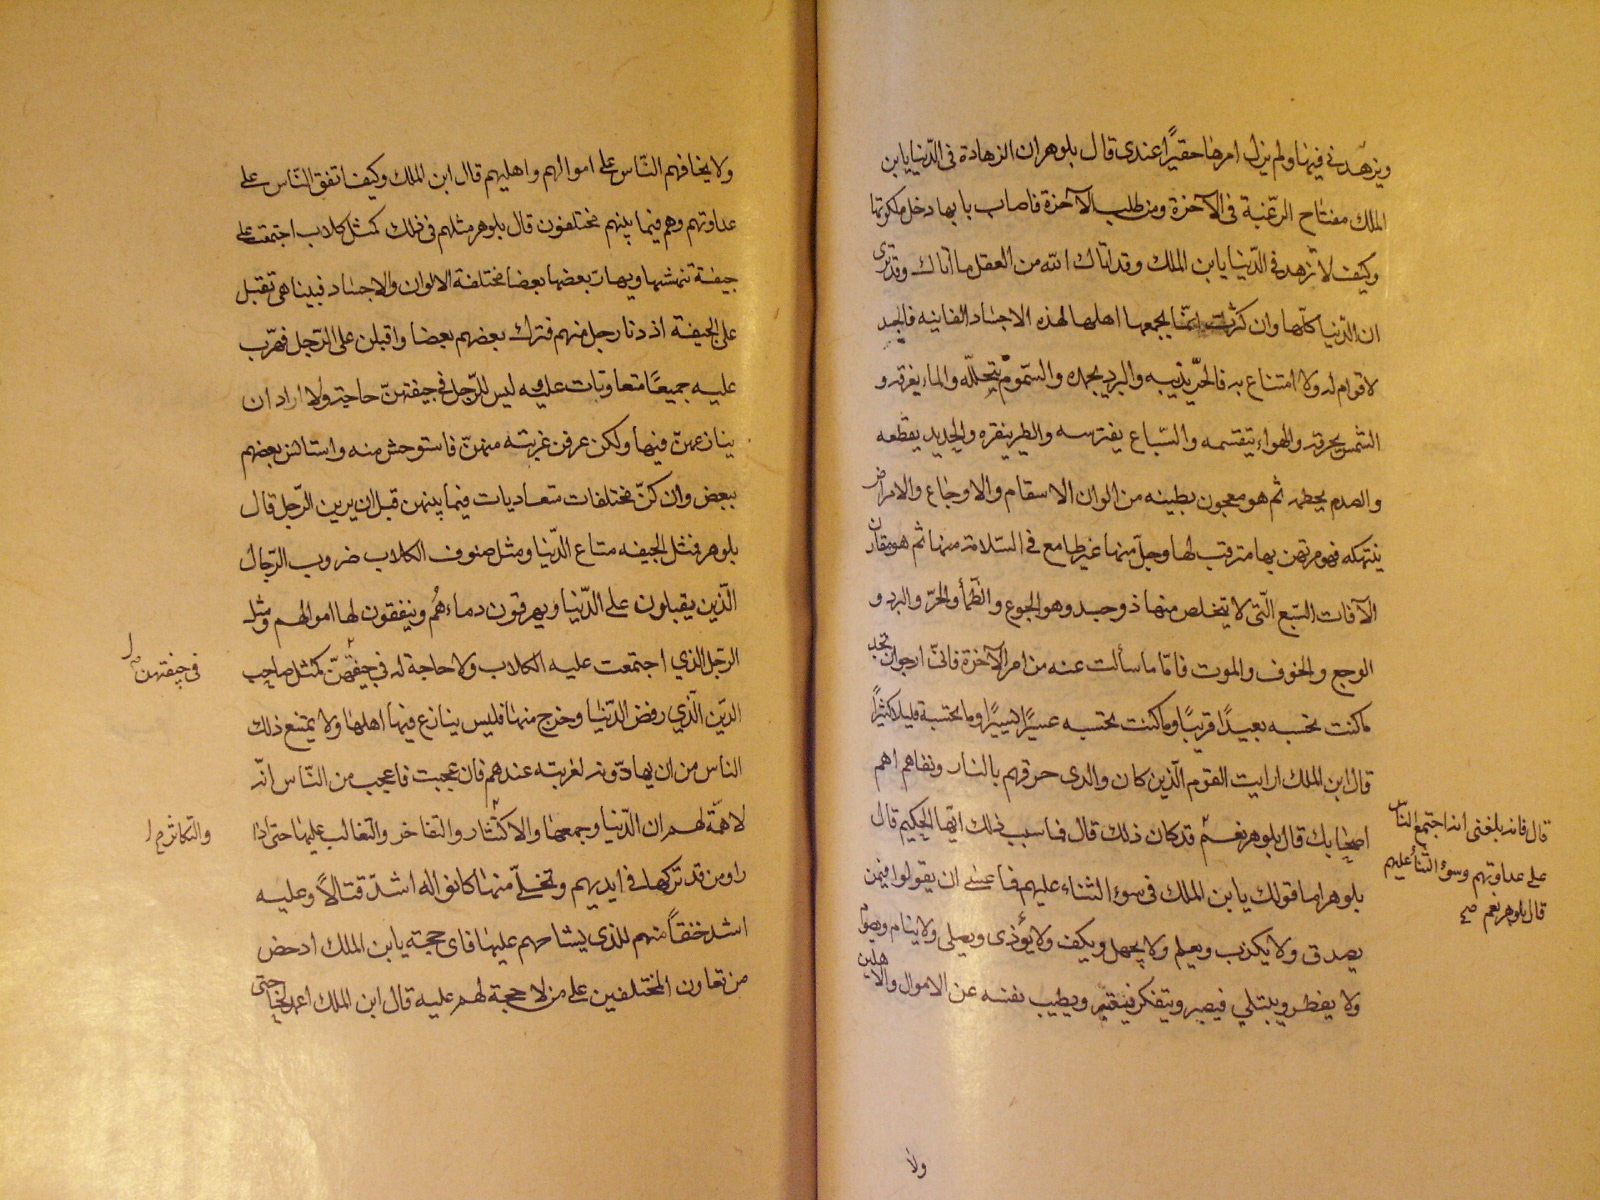 ويزهدني فيها ولم يزل امرها حقيرًا عندى قال بلوهر ان الزهادة فى الدّنيا يابن
الملك مفتاح الرّغبة فى الآخرة ومن طلب الآخرة فاصاب بابها دخل ملكوتها
وكيف لا تزهد فى الدّنيا يابن الملك وقد آتاك الله من العقل ما آتاك وقد ترى
ان الدّنيا كلّها وان كثرت انّما يجمعها اهلها لهذه الاجساد الفانيه فالجسد
لا قوام له ولا امتناع به فالحرّ يذيبه والبرد يجمده والسّموم يتحلله والماء يغرقه و
الشمس يحرقه والهواء يتقسمه والسّباع يفترسه والطير ينقره والحديد يقطعه
والصدم يحطمه ثم هو معجون بطينه من الوان الاسقام والاوجاع والامراض
ينتهكه فهو مرتهن بها مترقب لها وجل منها غير طامع فى السّلامة منها ثم هو مقارن
الآفات السّبع الّتى لا يتخلص منها ذو جسد وهو الجوع والظمأ والحرّ والبرد و
الوجع والخوف والموت فامّا ما سألت عنه من امر الآخرة فانّى ارجو ان تجد
ما كنت تحسبه بعيدًا قريبًا وما كنت تحتسبه عسيرًا يسيرًا وما تحتسبه قليلا كثيرًا
قال ابن الملك ارايت القوم الّذين كان والدى حرقهم بالنار ونفاهم اهم
اصحابك قال بلوهر نعم قد كان ذلك قال فما سبب ذلك ايّها الحكيم قال
بلوهر اما قولك يابن الملك فى سوء الثناء عليهم فما عسى ان يقولوا فيمن
يصدق ولا يكذب ويعلم ولا يجهل ويكف ولا يؤذى ويصلى ولا ينام ويصوم
ولا يفطر ويبتلي فيصبر ويتفكر فيعتبر ويطيب نفسه عن الاموال والاهلين
قال فانه بلغنى انه اجتمع الناس
على عداوتهم وسوء الثناء عليهم
قال بلوهر نعم صح
ولا
ولا يخافهم النّاس على اموالهم واهليهم قال ابن الملك وكيف اتفق النّاس على
عداوتهم وهم فيما بينهم مختلفون قال بلوهر مثلهم فى ذلك كمثل كلاب اجتمعت على
جيفة تنهشها ويهارّ بعضها بعضا مختلفة الالوان والاجناد فبينا هى تقبل
على الجيفة اذ دنا رجل منهم فترك بعضهم بعضا واقبلن على الرّجل فهرّت
عليه جميعًا متعاويات عليه ليس للرّجل فى جيفتهنّ حاجة ولا اراد ان
ينازعهن فيها ولكن عرفن غربته منهنّ فاستوحش منه واستانس بعضهم
ببعض وان كنّ مختلفات متعاديات فيما بينهن قبل ان يرين الرّجل قال
بلوهر فمثل الجيفه متاع الدّنيا ومثل صنوف الكلاب ضروب الرّجال
الّذين يقبلون على الدّنيا ويهرقون دماءهُم وينفقون لها اموالهم ومثل
الرجل الذي اجتمعت عليه الكلاب ولا حاجة له في جيفهنّ كمثل صاحب
الدّين الّذي رفض الدّنيا وخرج منها فليس ينازع فيها اهلها ولا يمنع ذلك
الناس من ان يهادّونه لغربته عندهم فان عجبت فاعجب من النّاس انّه
لا همّة لهم ان الدّنيا وجمعها والاكثار والتفاخر والتغالب عليها حتى اذا
راو من قد تركها فى ايديهم وتخلّى منها كانوا له اشدّ قتالًا وعليه
اشد حنقاً منهم للذى يشاحهم عليها فاى حجته يابن الملك ادحض
من تعاون المختلفين على من لا حجة لهم عليه قال ابن الملك اعد لحاجتى
فى جيفتهن
والتكاثر م